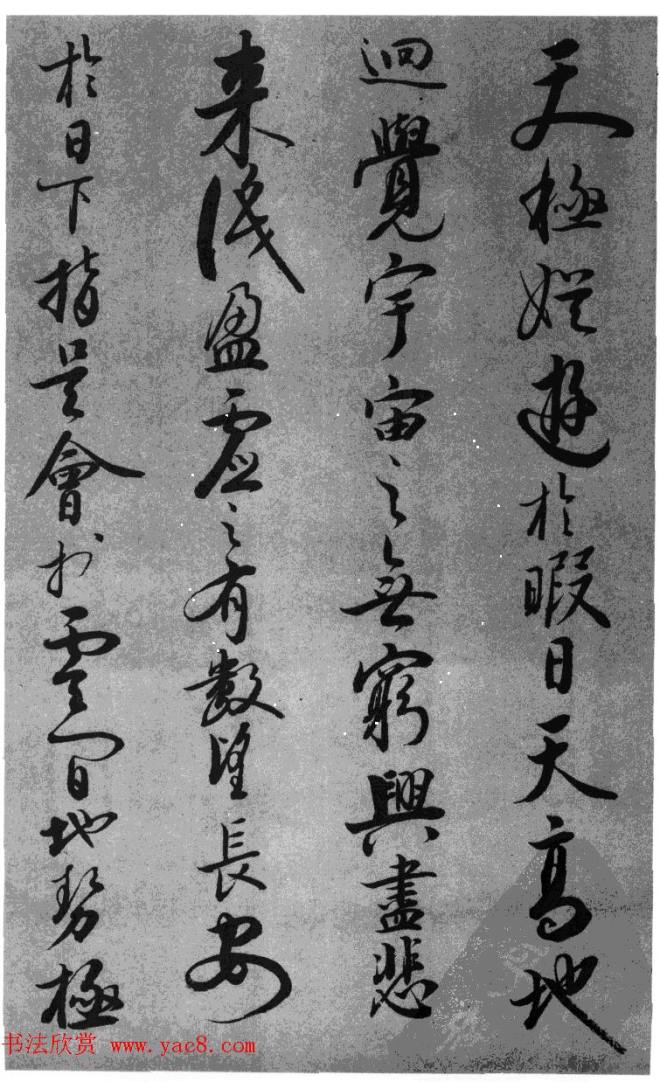 天極娱遊於暇日天高地
迴覺宇宙之無窮興盡悲
来識盈虛之有數望長安
於日下指吴會於雲間地勢極
书法欣赏 www.yac8.com